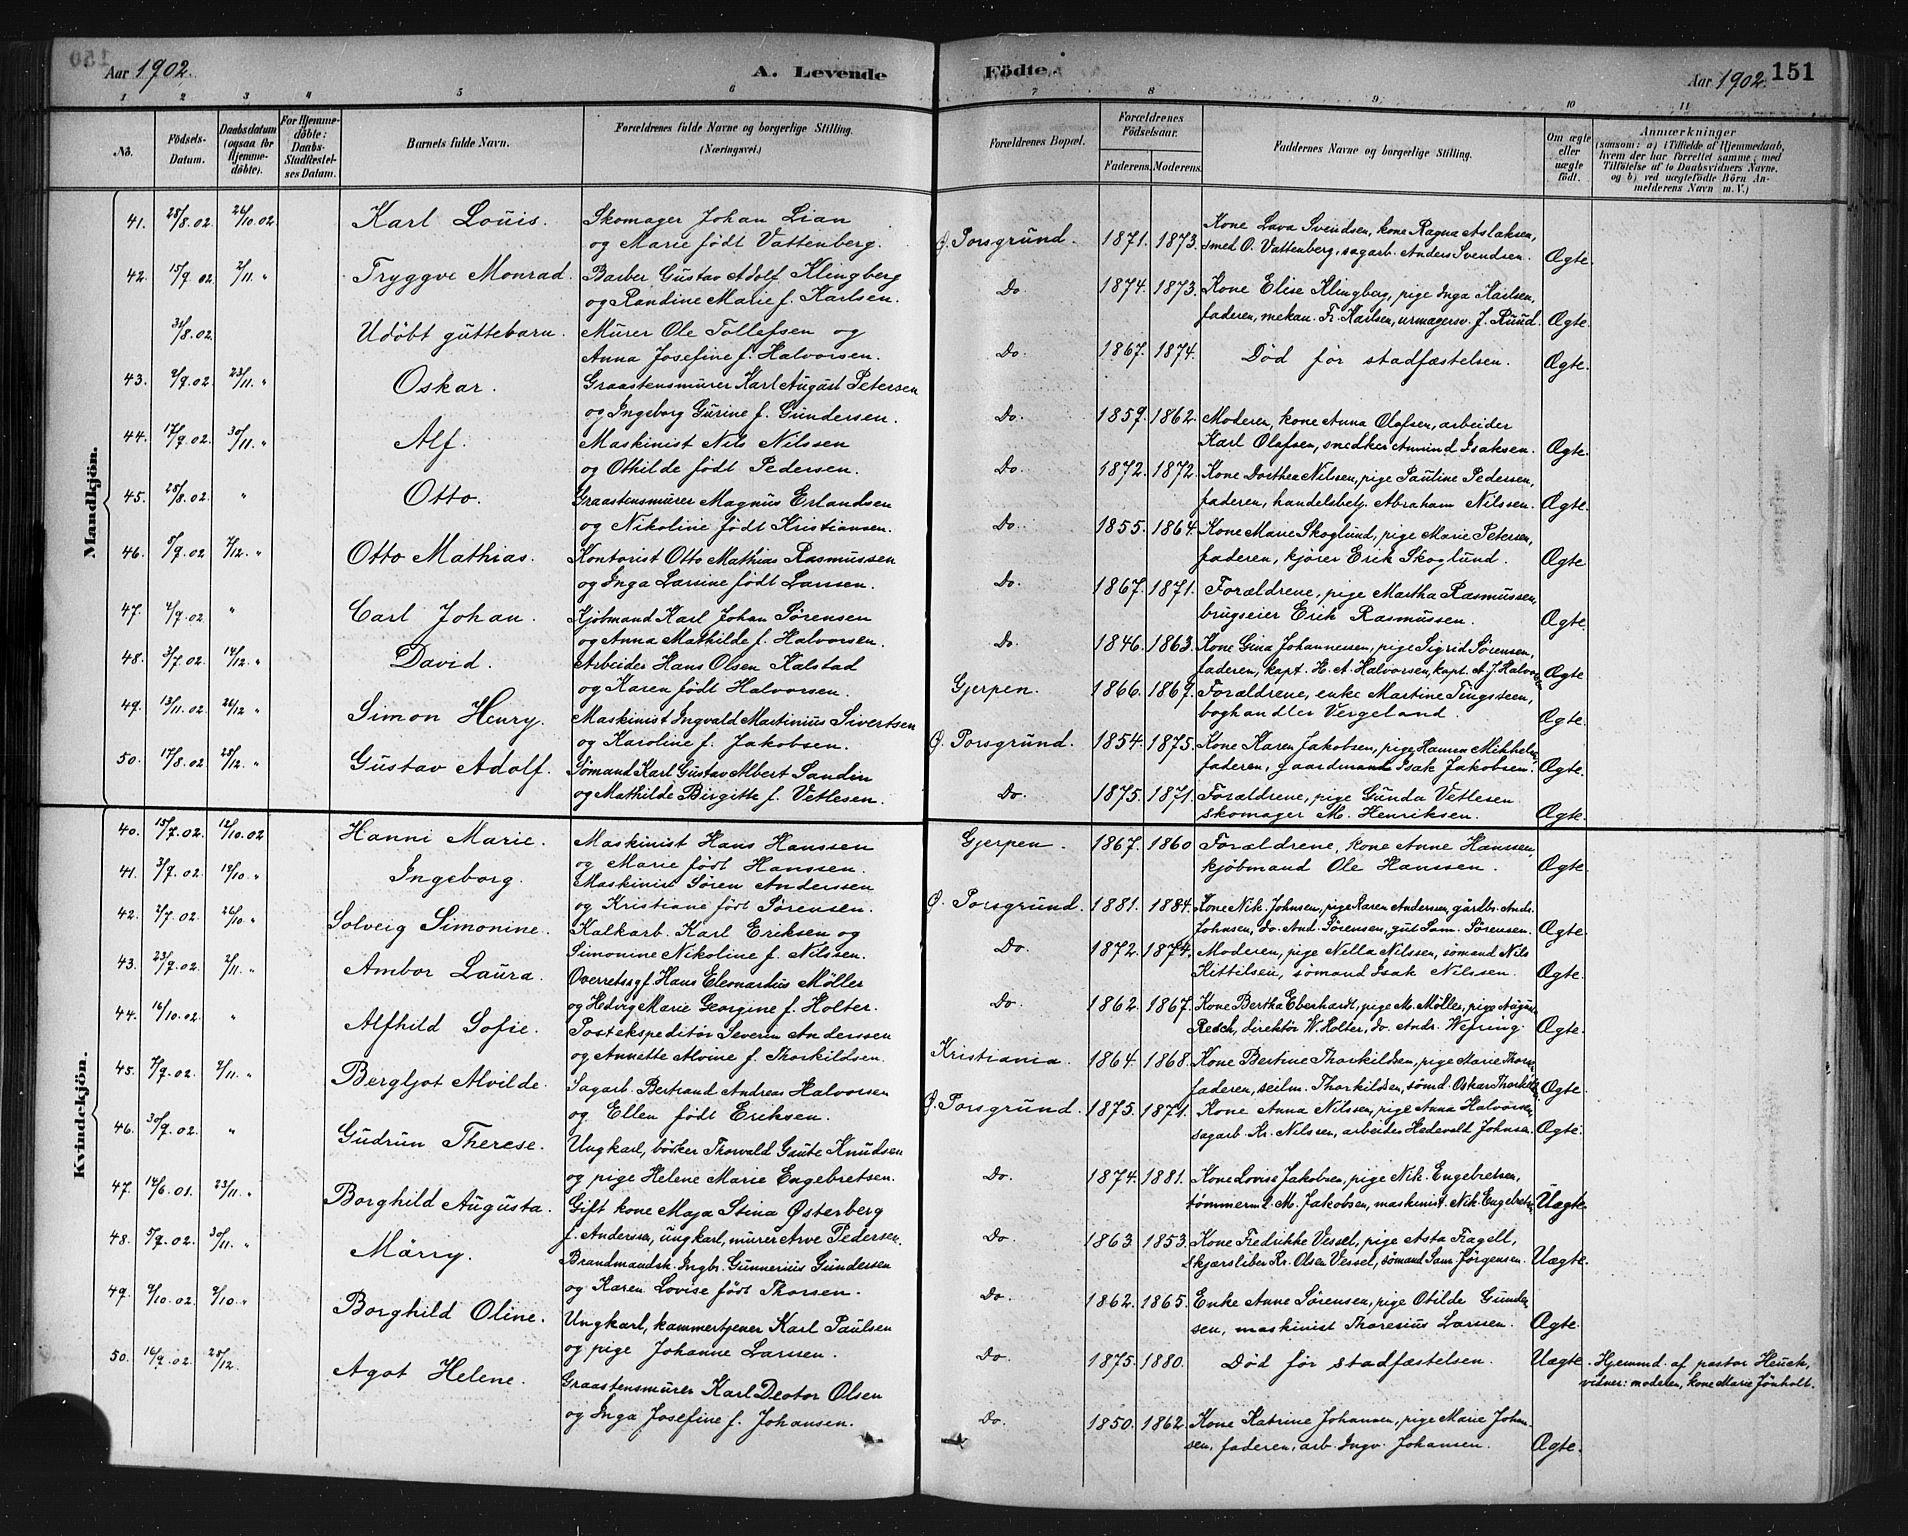 Aar 1902. A. Levende Födte. Aar 1902. 151
1 2 3 4 5 6 7 8 9 10 11
No. Födsels-Datum. Daabsdatum (ogsaa for Hjemmedöbte). For Hjemmedöbte: Daabs-Stadfæstelses Datum. Barnets fulde Navn. Forældrenes fulde Navne og borgerlige Stilling. (Næringsvei.) Forældrenes Bopæl. Forældrenes Födselsaar. Faderens. Moderens. Faddernes Navne og borgerlige Stilling. Om ægte eller uægte födt. Anmærkninger (saasom: a) i Tilfælde af Hjemmedaab, hvem der har forrettet samme, med Tilföielse af to Daabsvidners Navne, og b) ved uægtefödte Börn Anmelderens Navn m. V.)
Mandkjön.
41. 28/8.02 26/10.02 Karl Louis. Skomager Johan Lian
og Marie født Vattenberg. Ø. Porsgrund. 1871. 1873. Kone Lava Svendsen, kone Ragna Aslaksen,
smed O. Vattenberg, sagarb. Anders Svendsen. Ægte.
42. 15/9 02 2/11 " Tryggve Monrad. Barber Gustav Adolf Klingberg
og Randine Marie f. Karlsen. Do 1874. 1873. Kone Elise Klingberg, pige Inga Karlsen,
faderen, mekan. Fr. Karlsen, urmagersv. J. Ruud. Ægte.
31/8.02 Udøbt guttebarn. Murer Ole Tollefsen og
Anna Josefine f. Halvorsen. Do 1867. 1874. Død før stadfæstelsen. Ægte.
43. 2/9.02 23/11. " Oskar. Graastensmurer Karl August Petersen
og Ingeborg Gurine f. Gundersen. Do. 1859. 1862. Moderen, kone Anna Olafsen, arbeider
Karl Olafsen, snedker Anmund Isaksen. Ægte.
44. 17/9.02 30/11. " Alf. Maskinist Nils Nilssen
og Othilde født Pedersen. Do. 1872. 1872. Kone Dorthea Nilsen, pige Pauline Pedersen,
faderen, handelsbetj. Abraham Nilssen. Ægte.
45. 28/8.02 " Otto. Graastensmurer Magnus Erlandsen
og Nikoline født Kristiansen. Do. 1855. 1864. Kone Marie Skoglund, pige Marie Petersen,
faderen, kjører Erik Skoglund. Ægte
46. 5/9.02 7/12. " Otto Mathias. Kontorist Otto Mathias Rasmussen
og Inga Larsine født Larsen. Do. 1867. 1871. Forældrene, pige Martha Rasmussen,
brugseier Erik Rasmussen. Ægte.
47. 2/9.02 " Carl Johan. Kjøbmand Karl Johan Sørensen
og Anna Mathilde f. Halvorsen. Do. 1846. 1863. Kone Gina Johannessen, pige Sigrid Sørensen,
faderen, kapt. H. A. Halvorsen, kapt. A. J. Halvorsen. Ægte
48. 3/7.02 14/12. " David. Arbeider Hans Olsen Kalstad
og Karen født Halvorsen. Gjerpen. 1866. 1867. Forældrene, enke Martine Tingsteen,
boghandler Vergeland. Ægte.
49. 13/11.02 26/12 " Simon Henry. Maskinist Ingvald Martinius Sivertsen
og Karoline f. Jakobsen. Ø. Porsgrund. 1854. 1875. Kone Karen Jakobsen, pige Hanna Mikkelsen,
faderen, gaardmand Isak Jakobsen. Ægte.
50. 17/8.02 28/12. " Gustav Adolf. Sømand Karl Gustav Albert Sandin
og Mathilde Birgitte f. Vetlesen. Do. 1875. 1871. Forældrene, pige Gunda Vetlesen
skomager M. Henriksen. Ægte.
Kvindekjön.
40. 15/7.02. 12/10.02 Hanni Marie. Maskinist Hans Hanssen
og Marie født Hanssen. Gjerpen. 1867. 1860 Forældrene, kone Anne Hanssen,
kjøbmand Ole Hanssen. Ægte.
41. 3/7.02. 19/10. " Ingeborg. Maskinist Søren Anderssen
og Kristiane født Sørensen. Ø. Porsgrund. 1881. 1884. Kone Nik. Johnsen, pige Karen Andersen, gårdbr. Ands.
Johnsen, do. And. Sørensen, gut Sam. Sørensen. Ægte.
42. 2/7.02 26/10 " Solveig Simonine. Kalkarb. Karl Eriksen og
Simonine Nikoline f. Nilssen. Do. 1872. 1874. Moderen, pige Nella Nilssen, sømand Nils
Kittilsen, sømand Isak Nilssen. Ægte.
43. 23/9.02. 2/11. " Ambor Laura. Overretssgf. Hans Eleonardus Möller
og Hedvig Marie Georgine f. Holter. Do 1862. 1867. Kone Bertha Eberhardt, pige M. Möller, pige Augus
Resch, direktör W. Holter, do. Ands. Wefring. Ægte.
44. 16/10.02 " Alfhild Sofie. Postekspeditör Severin Anderssen
og Annette Alvine f. Thorkildsen. Kristiania. 1864. 1868. Kone Bertine Thorkildsen, pige Marie Thork
faderen, seilm. Thorkildsen, sömd. Oskar Thorkildsen. Ægte.
45. 7/9.02. 9/11. " Bergljot Alvilde. Sagarb. Bertrand Andreas Halvorsen
og Ellen født Eriksen. Ø. Porsgrund. 1875. 1871. Kone Anna Nilssen, pige Anna Halvorsen
sagarb. Kr. Nilssen, arbeider Hedevald Johnsen. Ægte.
46. 30/9.02. " Gudrun Therese. Ungkarl, bödker Thorvald Gaute Knudsen
og pige Helene Marie Engebretsen. Do. 1874. 1881. Kone Lovise Jakobsen, pige Nik. Engebretsen,
tømmerm. L. M. Jakobsen, maskinist. Nik. Engebretsen Uægte.
47. 12/6.01. 23/11. " Borghild Augusta. Gift kone Maja Stina Østerberg
f. Anderssen, ungkarl, murer Arve Pedersen. Do. 1863 1853. Kone Fredrikke Vessel, pige Asta Fragell,
skjærsliber Kr. Olsen Vessel, sømand Sam. Jørgensen. Uægte.
48. 5/9.02. 30/11. " Märry. Brandmandsk. Ingbr. Gunnerius Gundersen
og Karen Lovise født Thorsen. Do. 1862. 1865. Enke Anne Sørensen, pige Otilde Gunder
sen, maskinist Thoresius Larssen. Ægte.
49. 9/10.02. 9/10. " Borghild Oline. Ungkarl, kammertjener Karl Paulsen
og pige Johanne Larssen. Do. 1875. 1880. Død før stadfæstelsen. Uægte. Hjemmd. af pastor Heuch,
vidner: moderen, kone Marie Jönholt.
50. 16/9.02. 28/12. Agot Helene. Graastensmurer Karl Deotor Olsen
og Inga Josefine f. Johansen. Do. 1850. 1862. Kone Katrine Johansen, pige Marie Johan
sen, faderen, arb. Ingv. Johansen. Ægte.